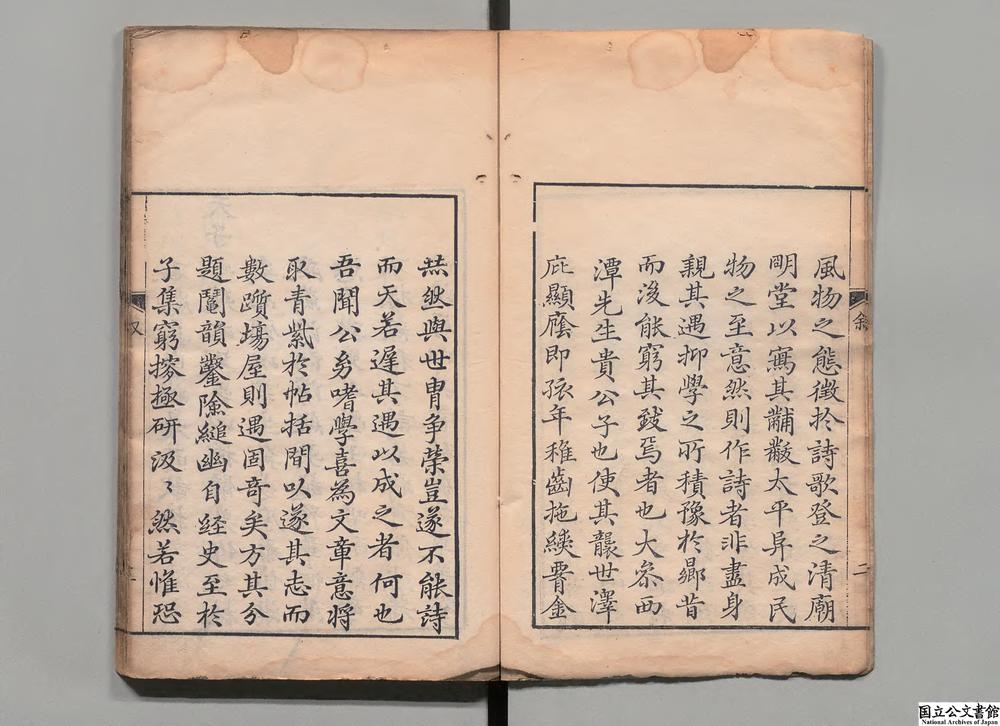 叙
二
風物之態徵扵詩歌登之清廟
明堂以寫其黼黻太平昇成民
物之至意然則作詩者非盡身
親其遇抑學之所積豫扵鄉昔
而後能窮其致焉者也大叅西
潭先生貴公子也使其襲世澤
庇顯廕即孩年稚齒拖金
赫然與世胄争榮豈遂不能詩
而天若遲其遇以成之者何也
吾聞公㓜嗜學喜為文章意將
取青紫扵帖括間以遂其志而
數躓塲屋則遇固奇矣方其分
題鬪韻鑿險縋幽自経史至扵
子集窮搜極研汲〻然若惟恐
国立公文書館
National Archives of Japan